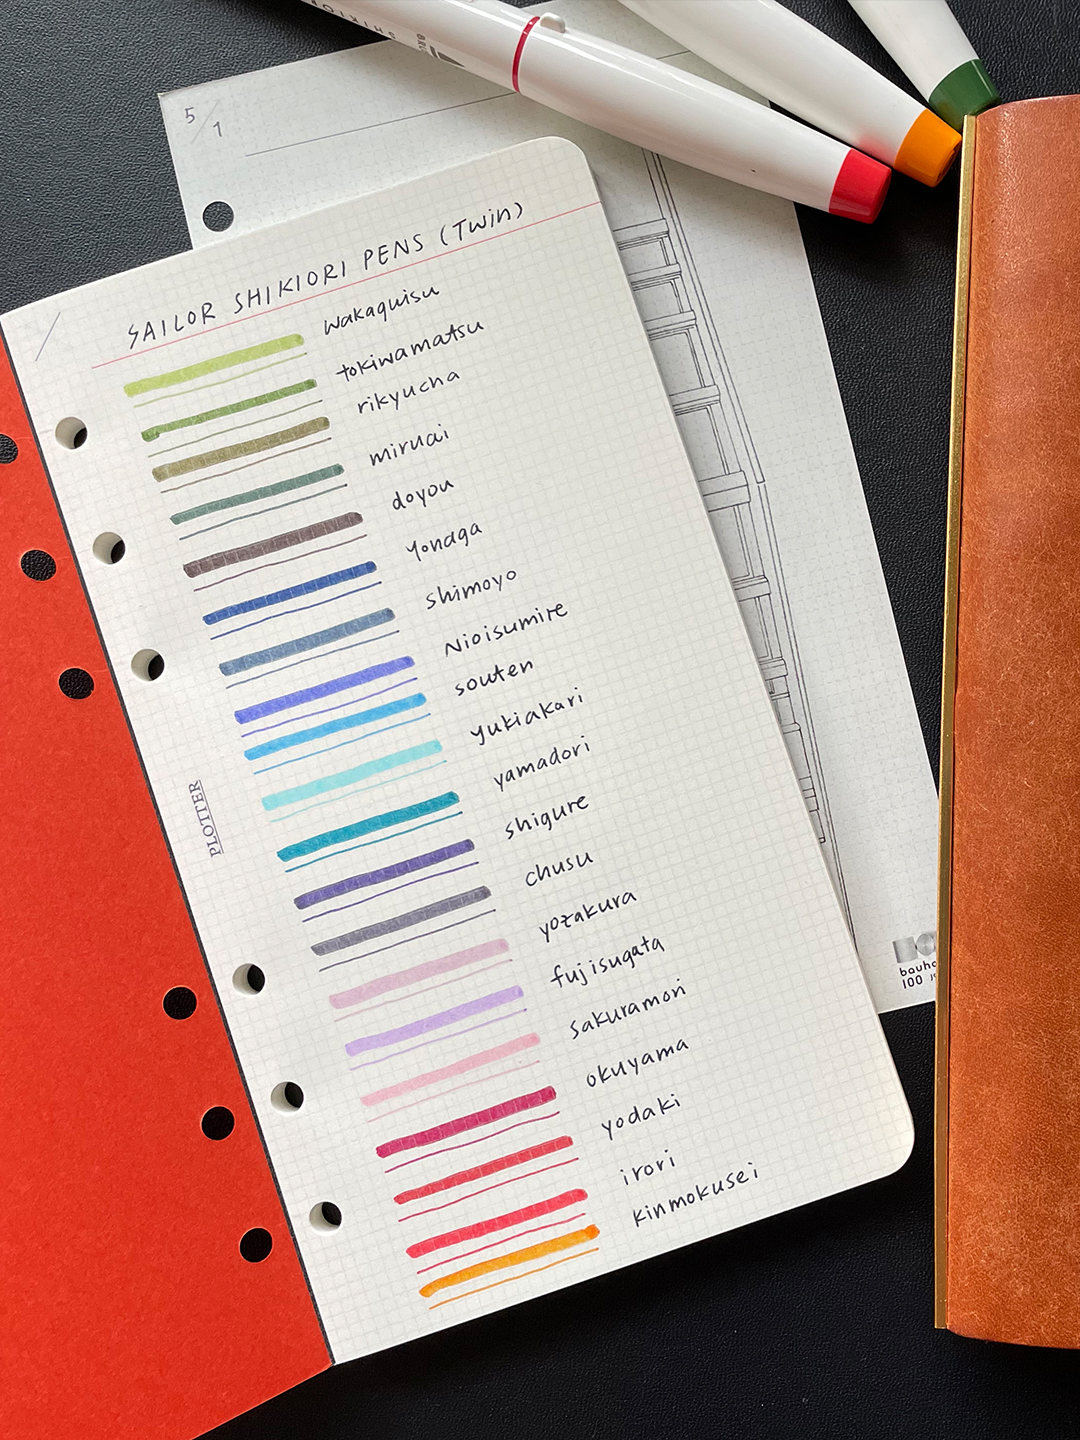 SHIKIOR
5/1
SAILOR SHIKIORI PENS (Twin)
wakaguisu
tokiwamatsu
rikyucha
miruai
doyou
yonaga
shimoyo
Nioisumire
souten
yukiakari
yamadori
shigure
chusu
yozakura
fujisugata
sakuramori
okuyama
yodaki
irori
kinmokusei
PLOTTER
bauha
100